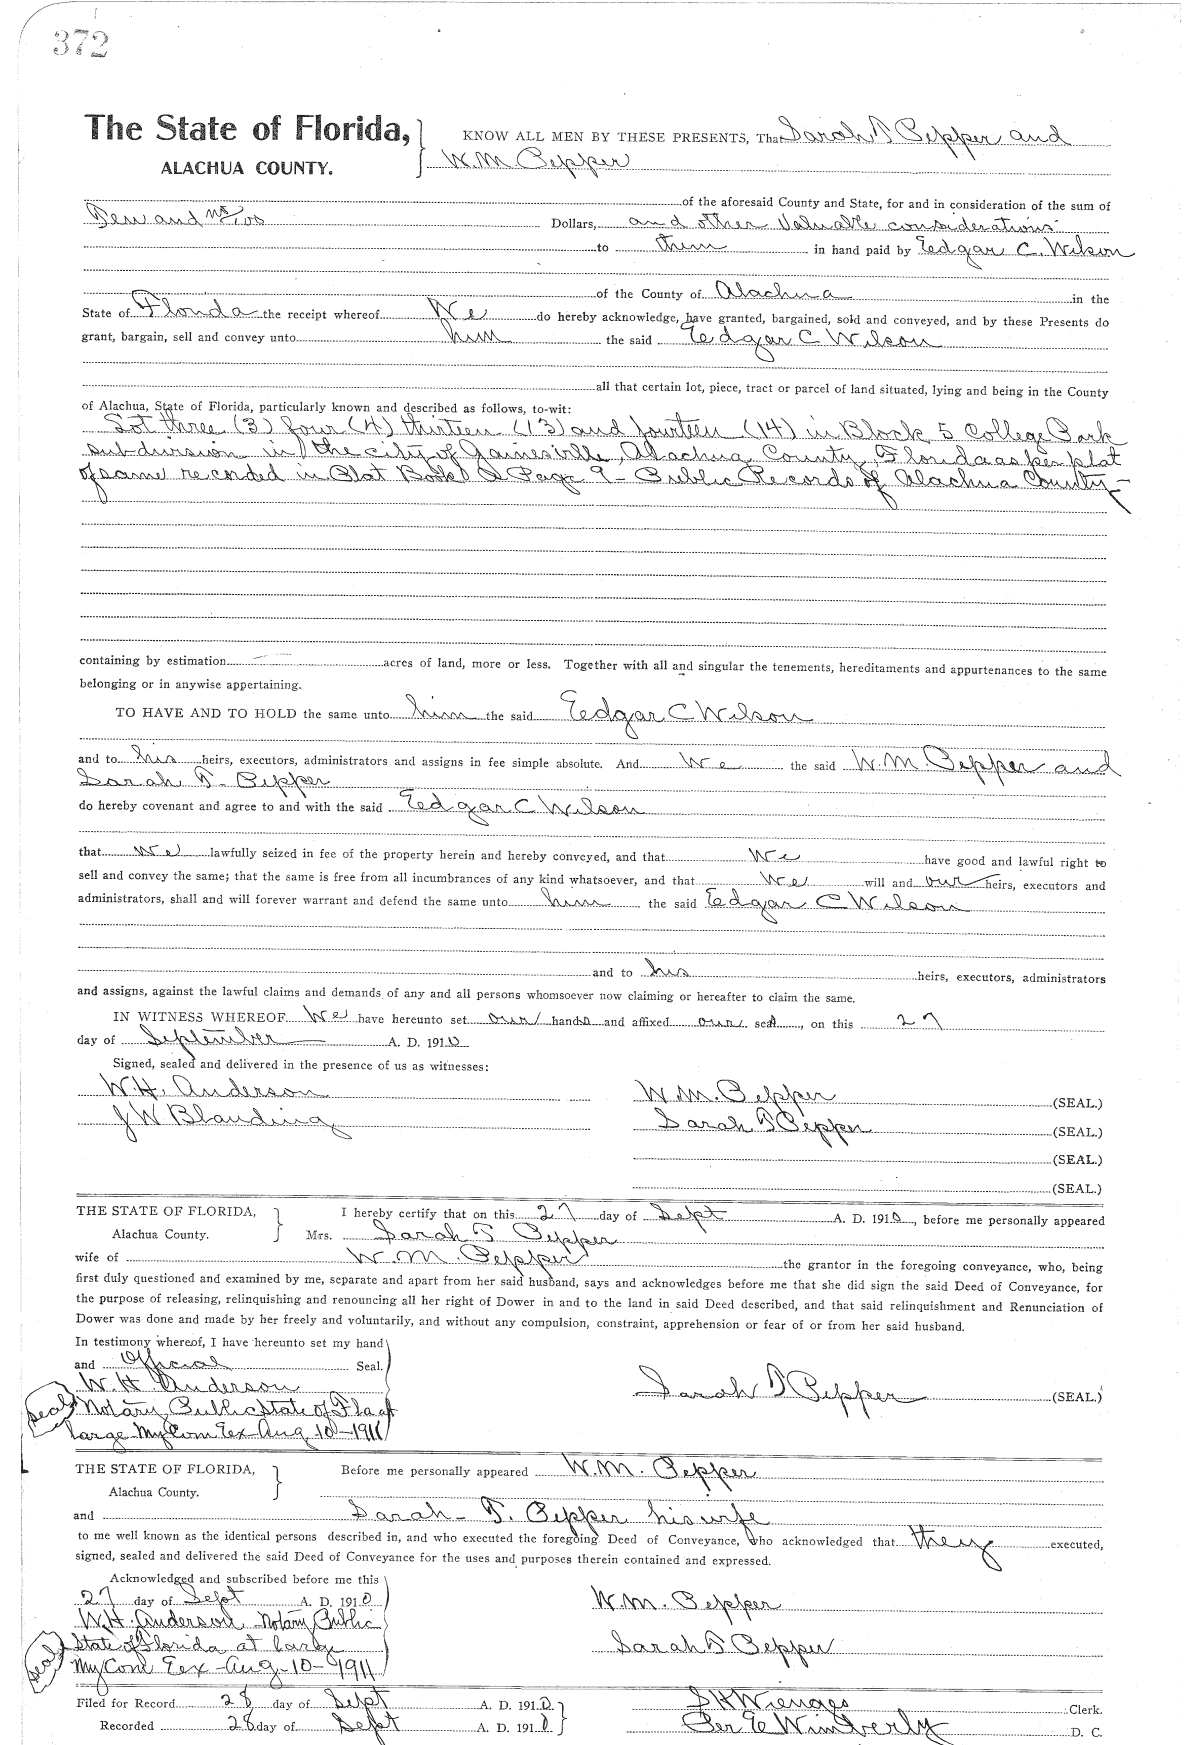 372
The State of Florida, KNOW ALL MEN BY THESE PRESENTS, That Sarah T Pepper and
ALACHUA COUNTY. W.M Pepper
of the aforesaid County and State, for and in consideration of the sum of
Ten and no/100 Dollars, and other Valuable considerations
to them in hand paid by Edgar C. Wilson
of the County of Alachua in the
State of Florida the receipt whereof We do hereby acknowledge, have granted, bargained, sold and conveyed, and by these Presents do
grant, bargain, sell and convey unto him the said Edgar C Wilson
all that certain lot, piece, tract or parcel of land situated, lying and being in the County
of Alachua, State of Florida, particularly known and described as follows, to-wit:
Lot three (3) four (4) thirteen (13) and fourteen (14) in Block 5 College Park
subdivision in the city of Gainesville, Alachua County, Florida as per plat
of same recorded in Plat Book A Page 9 - Public Records of Alachua County -
containing by estimation acres of land, more or less. Together with all and singular the tenements, hereditaments and appurtenances to the same
belonging or in anywise appertaining.
TO HAVE AND TO HOLD the same unto him the said Edgar C Wilson
and to his heirs, executors, administrators and assigns in fee simple absolute. And We the said W.M Pepper and
Sarah T. Pepper
do hereby covenant and agree to and with the said Edgar C Wilson
that we lawfully seized in fee of the property herein and hereby conveyed, and that We have good and lawful right to
sell and convey the same; that the same is free from all incumbrances of any kind whatsoever, and that We will and our heirs, executors and
administrators, shall and will forever warrant and defend the same unto him the said Edgar C Wilson
and to his heirs, executors, administrators
and assigns, against the lawful claims and demands of any and all persons whomsoever now claiming or hereafter to claim the same.
IN WITNESS WHEREOF We have hereunto set our hands and affixed our seal, on this 27
day of September A. D. 1910
Signed, sealed and delivered in the presence of us as witnesses:
W.H. Anderson W.M. Pepper (SEAL.)
J W Blanding Sarah T Pepper (SEAL.)
(SEAL.)
(SEAL.)
THE STATE OF FLORIDA, I hereby certify that on this 27 day of Sept A. D. 1910, before me personally appeared
Alachua County. Mrs. Sarah T. Pepper
wife of W.M. Pepper the grantor in the foregoing conveyance, who, being
first duly questioned and examined by me, separate and apart from her said husband, says and acknowledges before me that she did sign the said Deed of Conveyance, for
the purpose of releasing, relinquishing and renouncing all her right of Dower in and to the land in said Deed described, and that said relinquishment and Renunciation of
Dower was done and made by her freely and voluntarily, and without any compulsion, constraint, apprehension or fear of or from her said husband.
In testimony whereof, I have hereunto set my hand
and Official Seal.
W.H Anderson Sarah T Pepper (SEAL.)
seal Notary Public State of Fla at
large My Com Ex Aug 10-1911
THE STATE OF FLORIDA, Before me personally appeared W.M. Pepper
Alachua County.
and Sarah - T. Pepper his wife
to me well known as the identical persons described in, and who executed the foregoing Deed of Conveyance, who acknowledged that they executed,
signed, sealed and delivered the said Deed of Conveyance for the uses and purposes therein contained and expressed.
Acknowledged and subscribed before me this
27 day of Sept A. D. 1910 W.M. Pepper
W.H. Anderson Notary Public
seal State of Florida at large Sarah T Pepper
My Com Eex - Aug-10-1911
Filed for Record 28 day of Sept A. D. 1910 S H Wienges Clerk.
Recorded 28 day of Sept A. D. 1910 Per E Wimberly D. C.